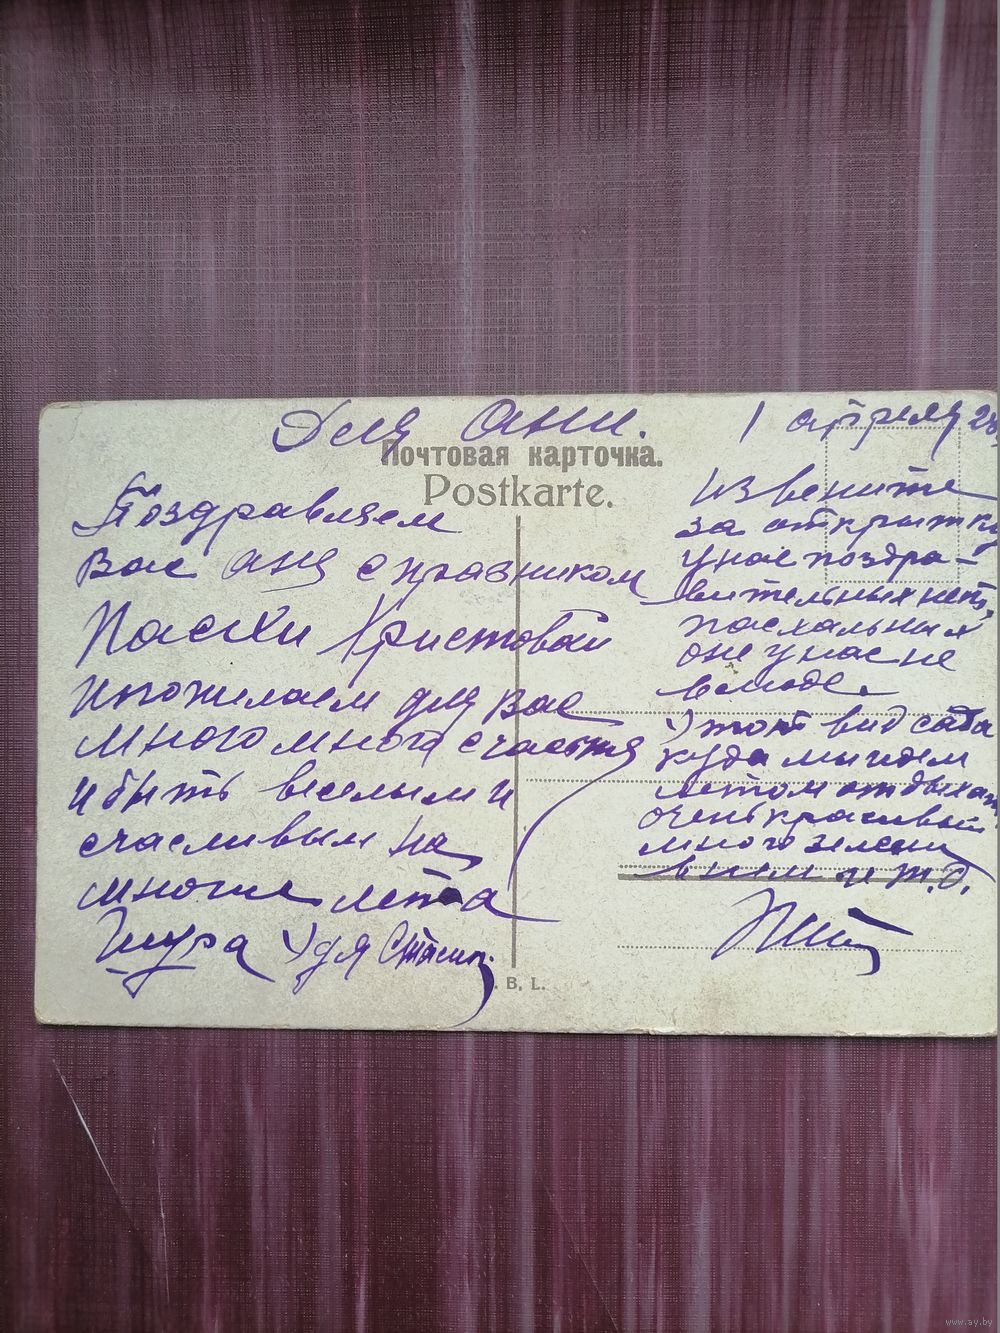 Для Ани.
1 апреля 28
Почтовая карточка.
Postkarte.
Поздравляем
Вас Аня с празником
Пасхи Христовай
и пожилаем для Вас
много много счастья
и быть веселым и
счасливым на
многие лета
Шура Удя
Извените
за открытку
у нас поздра-
вительных нет,
пасхальных
оне у нас не
в моде.
Этот вид сада
куда мы идем
летом отдыхат
очень красивый
много зелени
в нем и т.д.
B. L.
www.ay.by